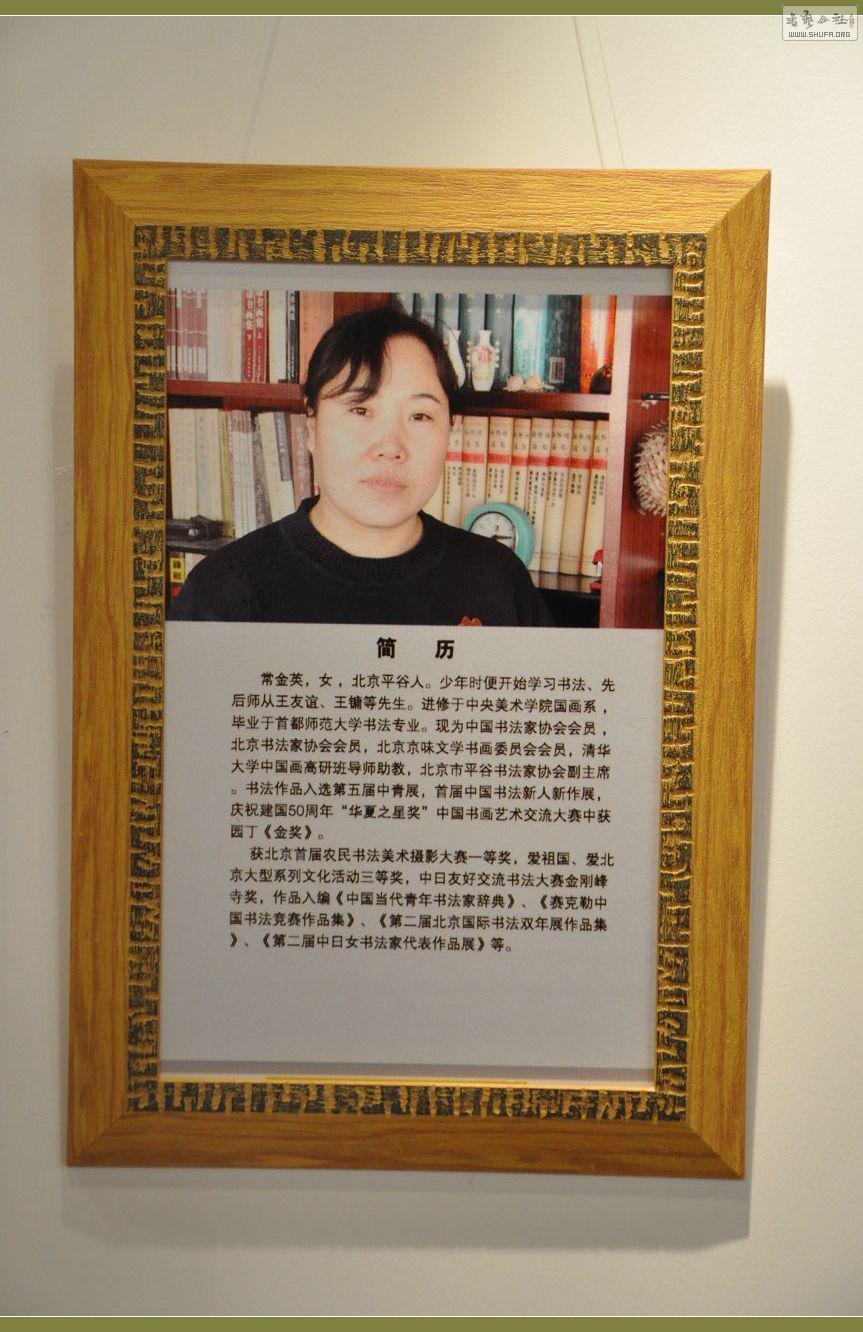 书艺公社
WWW.SHUFA.ORG
书画集 上
书画集 下
简 历
常金英，女，北京平谷人。少年时便开始学习书法、先
后师从王友谊、王镛等先生。进修于中央美术学院国画系，
毕业于首都师范大学书法专业。现为中国书法家协会会员，
北京书法家协会会员，北京京味文学书画委员会会员，清华
大学中国画高研班导师助教，北京市平谷书法家协会副主席
。书法作品入选第五届中青展，首届中国书法新人新作展，
庆祝建国50周年“华夏之星奖”中国书画艺术交流大赛中获
园丁《金奖》。
获北京首届农民书法美术摄影大赛一等奖，爱祖国、爱北
京大型系列文化活动三等奖，中日友好交流书法大赛金刚峰
寺奖，作品入编《中国当代青年书法家辞典》、《赛克勒中
国书法竞赛作品集》、《第二届北京国际书法双年展作品集
》、《第二届中日女书法家代表作品展》等。